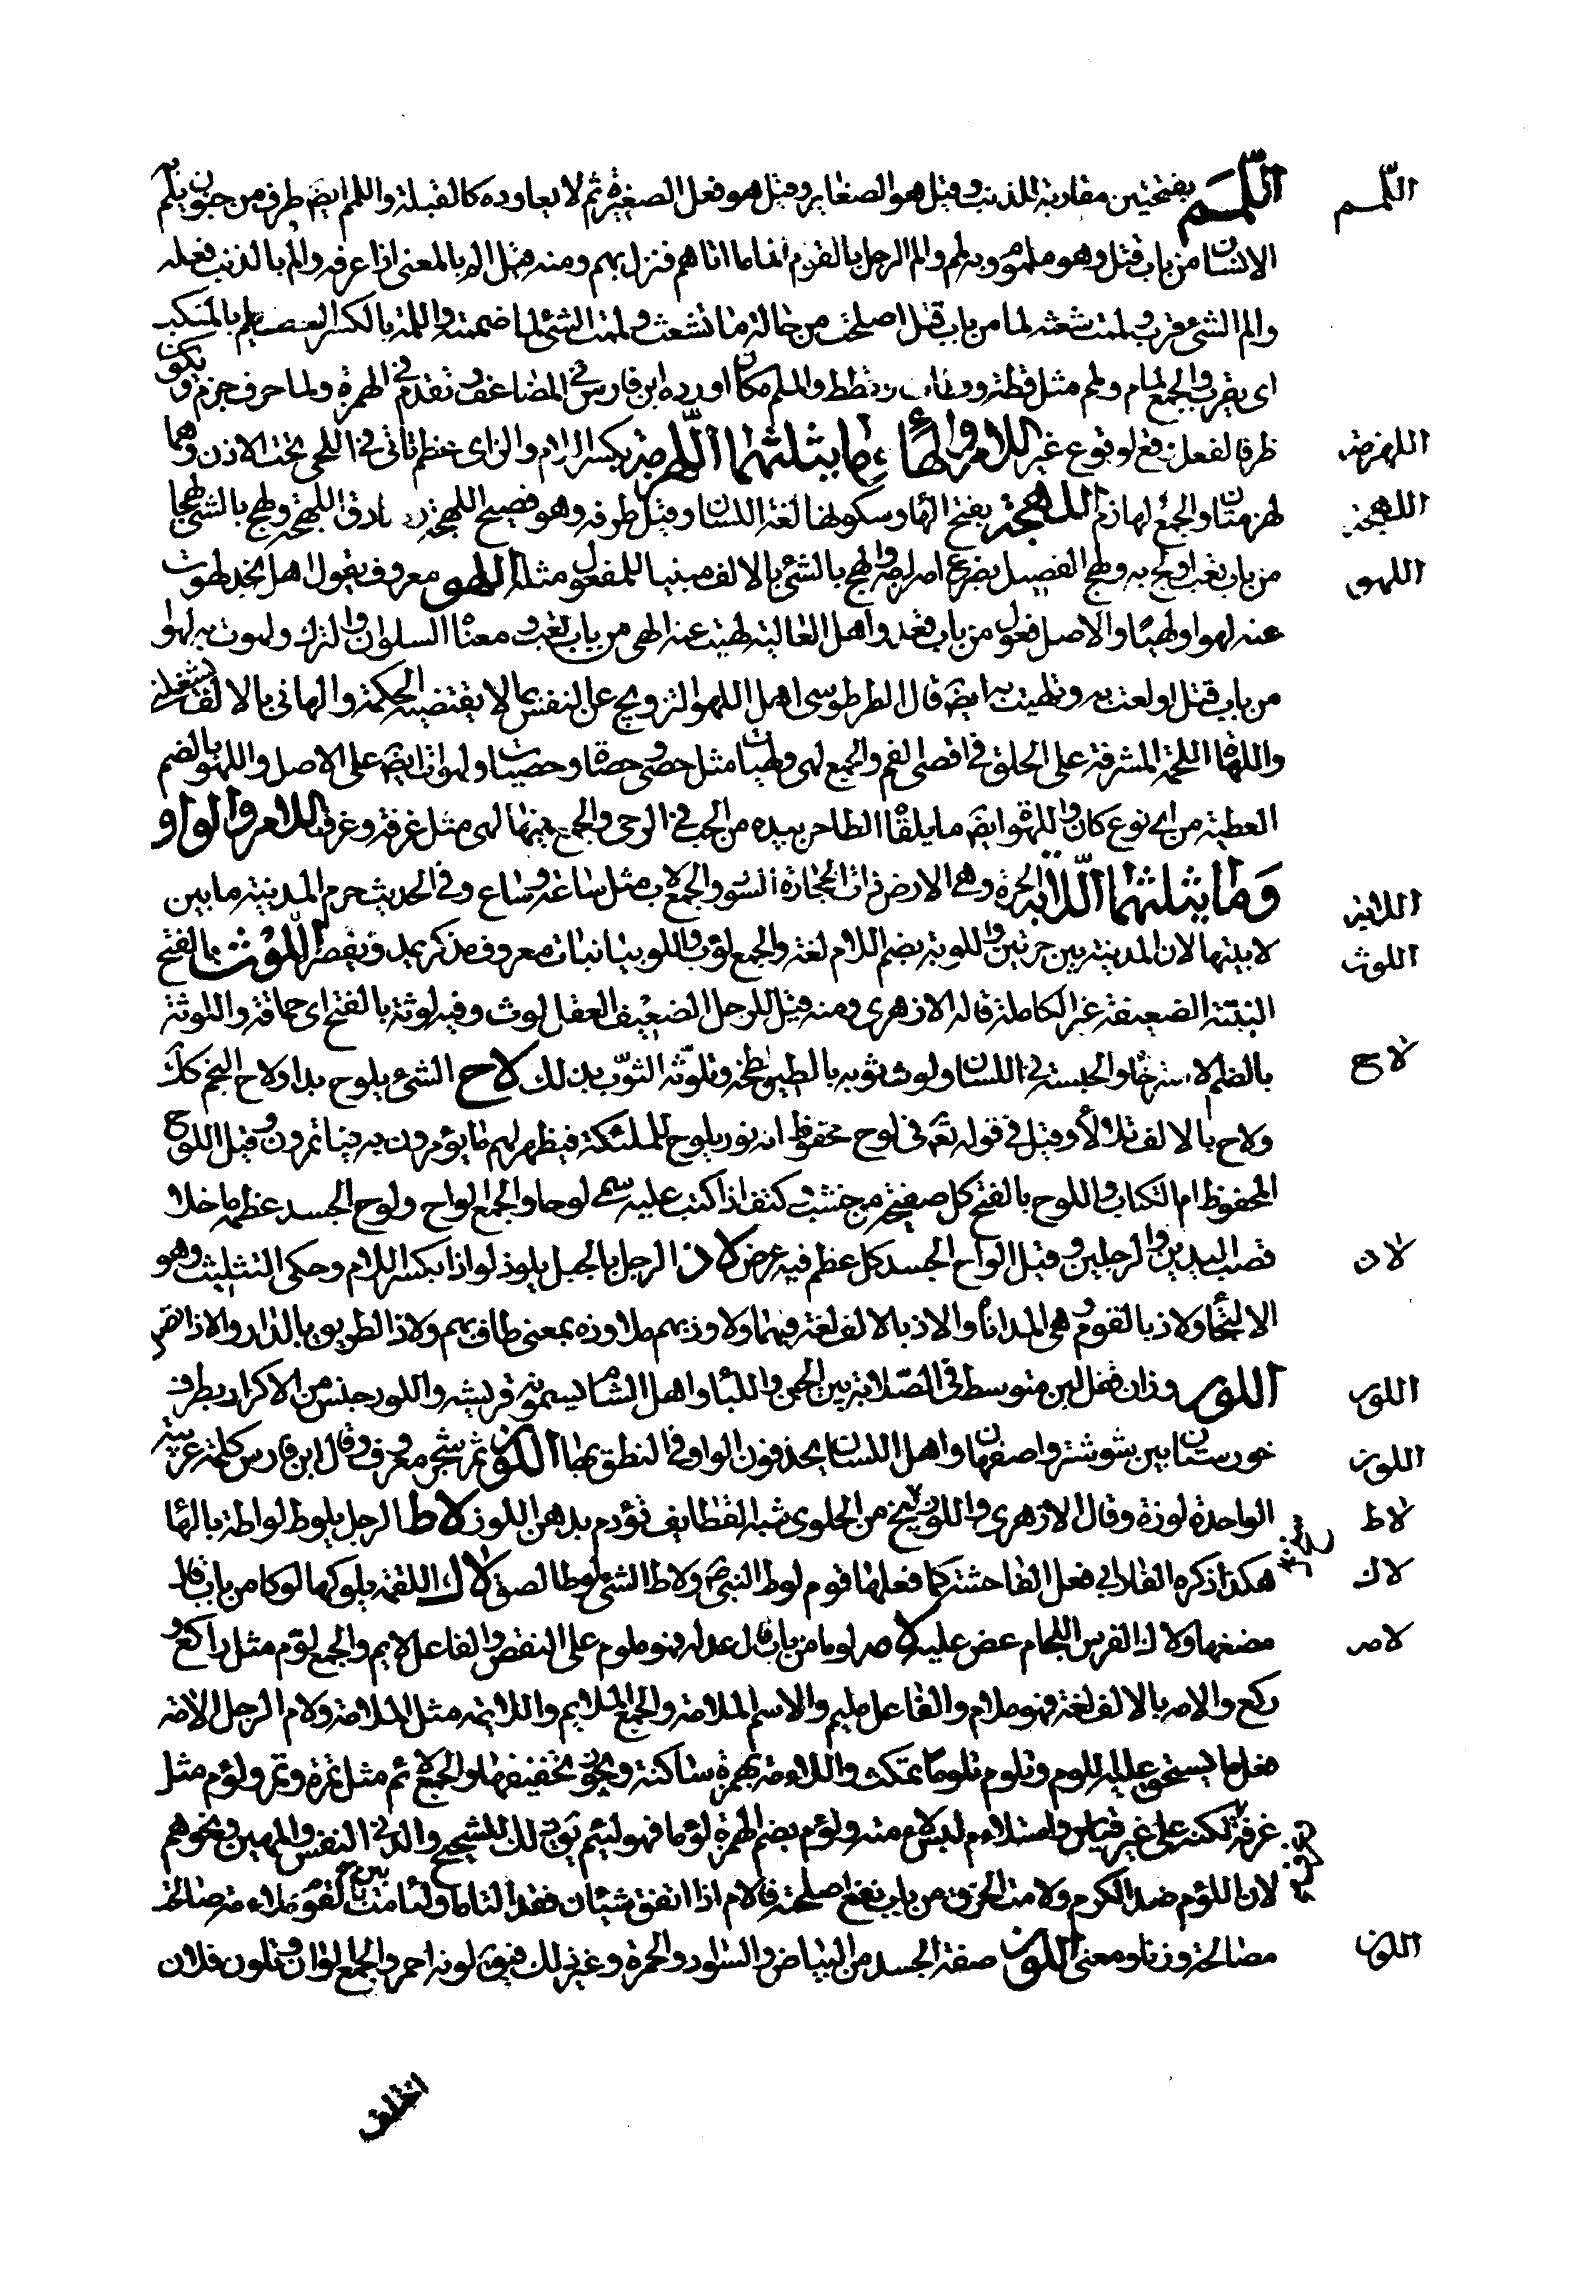 اللمم اللَّمَم بفتحتين مقاربة الذنب وقيل هو الصغاير وقيل هو فعل الصغيرة ثم لا يعاوده كالقبلة واللمم ايضا طرف من جنون يلم
الانسان من باب قتل وهو ملموم وبه لمم والم الرجل بالقوم الماما اتاهم فنزل بهم ومنه قيل الم بالمعنى اذا عرفه والم بالذنب فعله
والم الشئ قرب ولممت شعثه لما من باب قتل اصلحت من حاله ما تشعث ولممت الشئ لما ضممته واللمة بالكسر الشعر يلم بالمنكب
اى يقرب والجمع لمام ولمم مثل قطة وقطاط وقطط والملم مكان اورده ابن فارس فى المضاعف وتقدم فى الهمزة ولما حرف جزم وتكون
اللهزمة ظرفا لفعل وقع لوقوع غيره اللام والهاء وما يثلثهما اللهزمة بكسر اللام والزاى عظم ناتئ فى اللحى تحت الاذن وهما
اللهجة لهزمتان والجمع لهازم اللهجة بفتح الهاء وسكونها لغة اللسان وقيل طرفه وهو فصيح اللهجة وصادق اللهجة ولهج بالشئ لهجا
اللهو من باب تعب اولع به ولهج الفصيل بضرع امه لزمه والهج بالشئ بالالف مبنيا للمفعول مثله اللهو معروف يقول اهل نجد لهوت
عنه لهوا ولهيا والاصل فعول من باب قعد واهل العالية لهيت عنه الهى من باب تعب ومعناه السلوان والترك ولهوت به لهوا
من باب قتل اولعت به وتلهيت به ايضا قال الطرطوسى اصل اللهو الترويح عن النفس بما لا يقتضيه الحكمة والهانى بالالف شغلنى
واللهاة اللحمة المشرفة على الحلق فى اقصى الفم والجمع لهى ولهيات مثل حصى وحصاة وحصيات ولهوات ايضا على الاصل واللهوة بالضم
العطية من اى نوع كان واللهوة ايضا ما يلقاه الطاحن بيده من الحب فى الرحى والجمع فيهما لهى مثل غرفة وغرف اللام والواو
اللابة وما يثلثهما اللابة الحرة وهى الارض ذات الحجارة السود والجمع لاب مثل ساعة وساع وفى الحديث حرم المدينة ما بين
اللوث لابتيها لان المدينة بين حرتين واللوبة بضم اللام لغة والجمع لوب واللوبيا نبات معروف مذكر يمد ويقصر اللوث بالفتح
البينة الضعيفة غير الكاملة قاله الازهرى ومنه قيل للرجل الضعيف العقل لوث وفيه لوثة بالفتح اى حماقة واللوثة
لاح بالضم الاسترخاء والحبسة فى اللسان ولوث ثوبه بالطين لطخه وتلوث الثوب بذلك لاح الشئ يلوح بدا ولاح النجم كذلك
ولاح بالالف تلألأ وقيل فى قوله تعالى فى لوح محفوظ انه نور يلوح للملئكة فيظهر لهم ما يؤمرون به فيأتمرون وقيل اللوح
المحفوظ ام الكتاب واللوح بالفتح كل صفيحة من خشب وكتف اذا كتب عليه سمى لوحا والجمع الواح ولوح الجسد عظمه ما خلا
لاذ قصب اليدين والرجلين وقيل الواح الجسد كل عظم فيه عرض لاذ الرجل بالجبل يلوذ لواذا بكسر اللام وحكى التثليث وهو
الالتجاء ولاذ بالقوم وهى المداناة والاذ بالالف لغة فيهما ولاوذ بهم ملاوذة بمعنى طاف بهم ولاذ الطريق بالدار والاذ اتصل
اللور اللور وزان قفل لبن متوسط فى الصلابة بين الجبن واللبأ واهل الشام يسمونه قريشه واللور جنس من الاكراد بطرف
اللوز خورستان بين شوشتر واصفهان واهل اللسان يحذفون الواو فى النطق بها اللوز ثمر شجر معروف وقال ابن فارس كلمة عربية
لاط الواحدة لوزة وقال الازهرى واللوزينج من الحلوى شبه القطايف تؤدم بدهن اللوز لاط الرجل يلوط لواطة بالهاء
لاك هكذا ذكره الفارابى فعل الفاحشة كما فعلها قوم لوط النبى ولاط الشئ لوطا لصق لاك اللقمة يلوكها لوكا من باب قال
لام مضغها ولاك الفرس اللجام عض عليه لامه لوما من باب قال عذله فهو ملوم على النقص والفاعل لايم والجمع لوم مثل راكع و
ركع والامه بالالف لغة فهو ملام والفاعل مليم والاسم الملامة والجمع الملايم واللايمة مثل الملامة ولام الرجل الامة
فعل ما يستحق عليه اللوم وتلوم تلوما تمكث واللأمة بهمزة ساكنة ويجوز تخفيفها والجمع لأم مثل تمرة وتمر ولؤم مثل
غرف لكنه على غير قياس واستلأم لبس لأمته ولؤم بضم الهمزة لؤما فهو لئيم يق ذلك للشحيح والدنى النفس والمهين ونحوهم
لان اللؤم ضد الكرم ولأمت الخرق من باب نفع اصلحته فالتأم اذا اتفق شيئان فقد التأما ولأمت بين القوم ملاءمة مثل صالحت
اللون مصالحة وزنا ومعنى اللون صفة الجسد من البياض والسواد والحمرة وغير ذلك فيق لونه احمر والجمع الوان وتلون فلان
اختلف